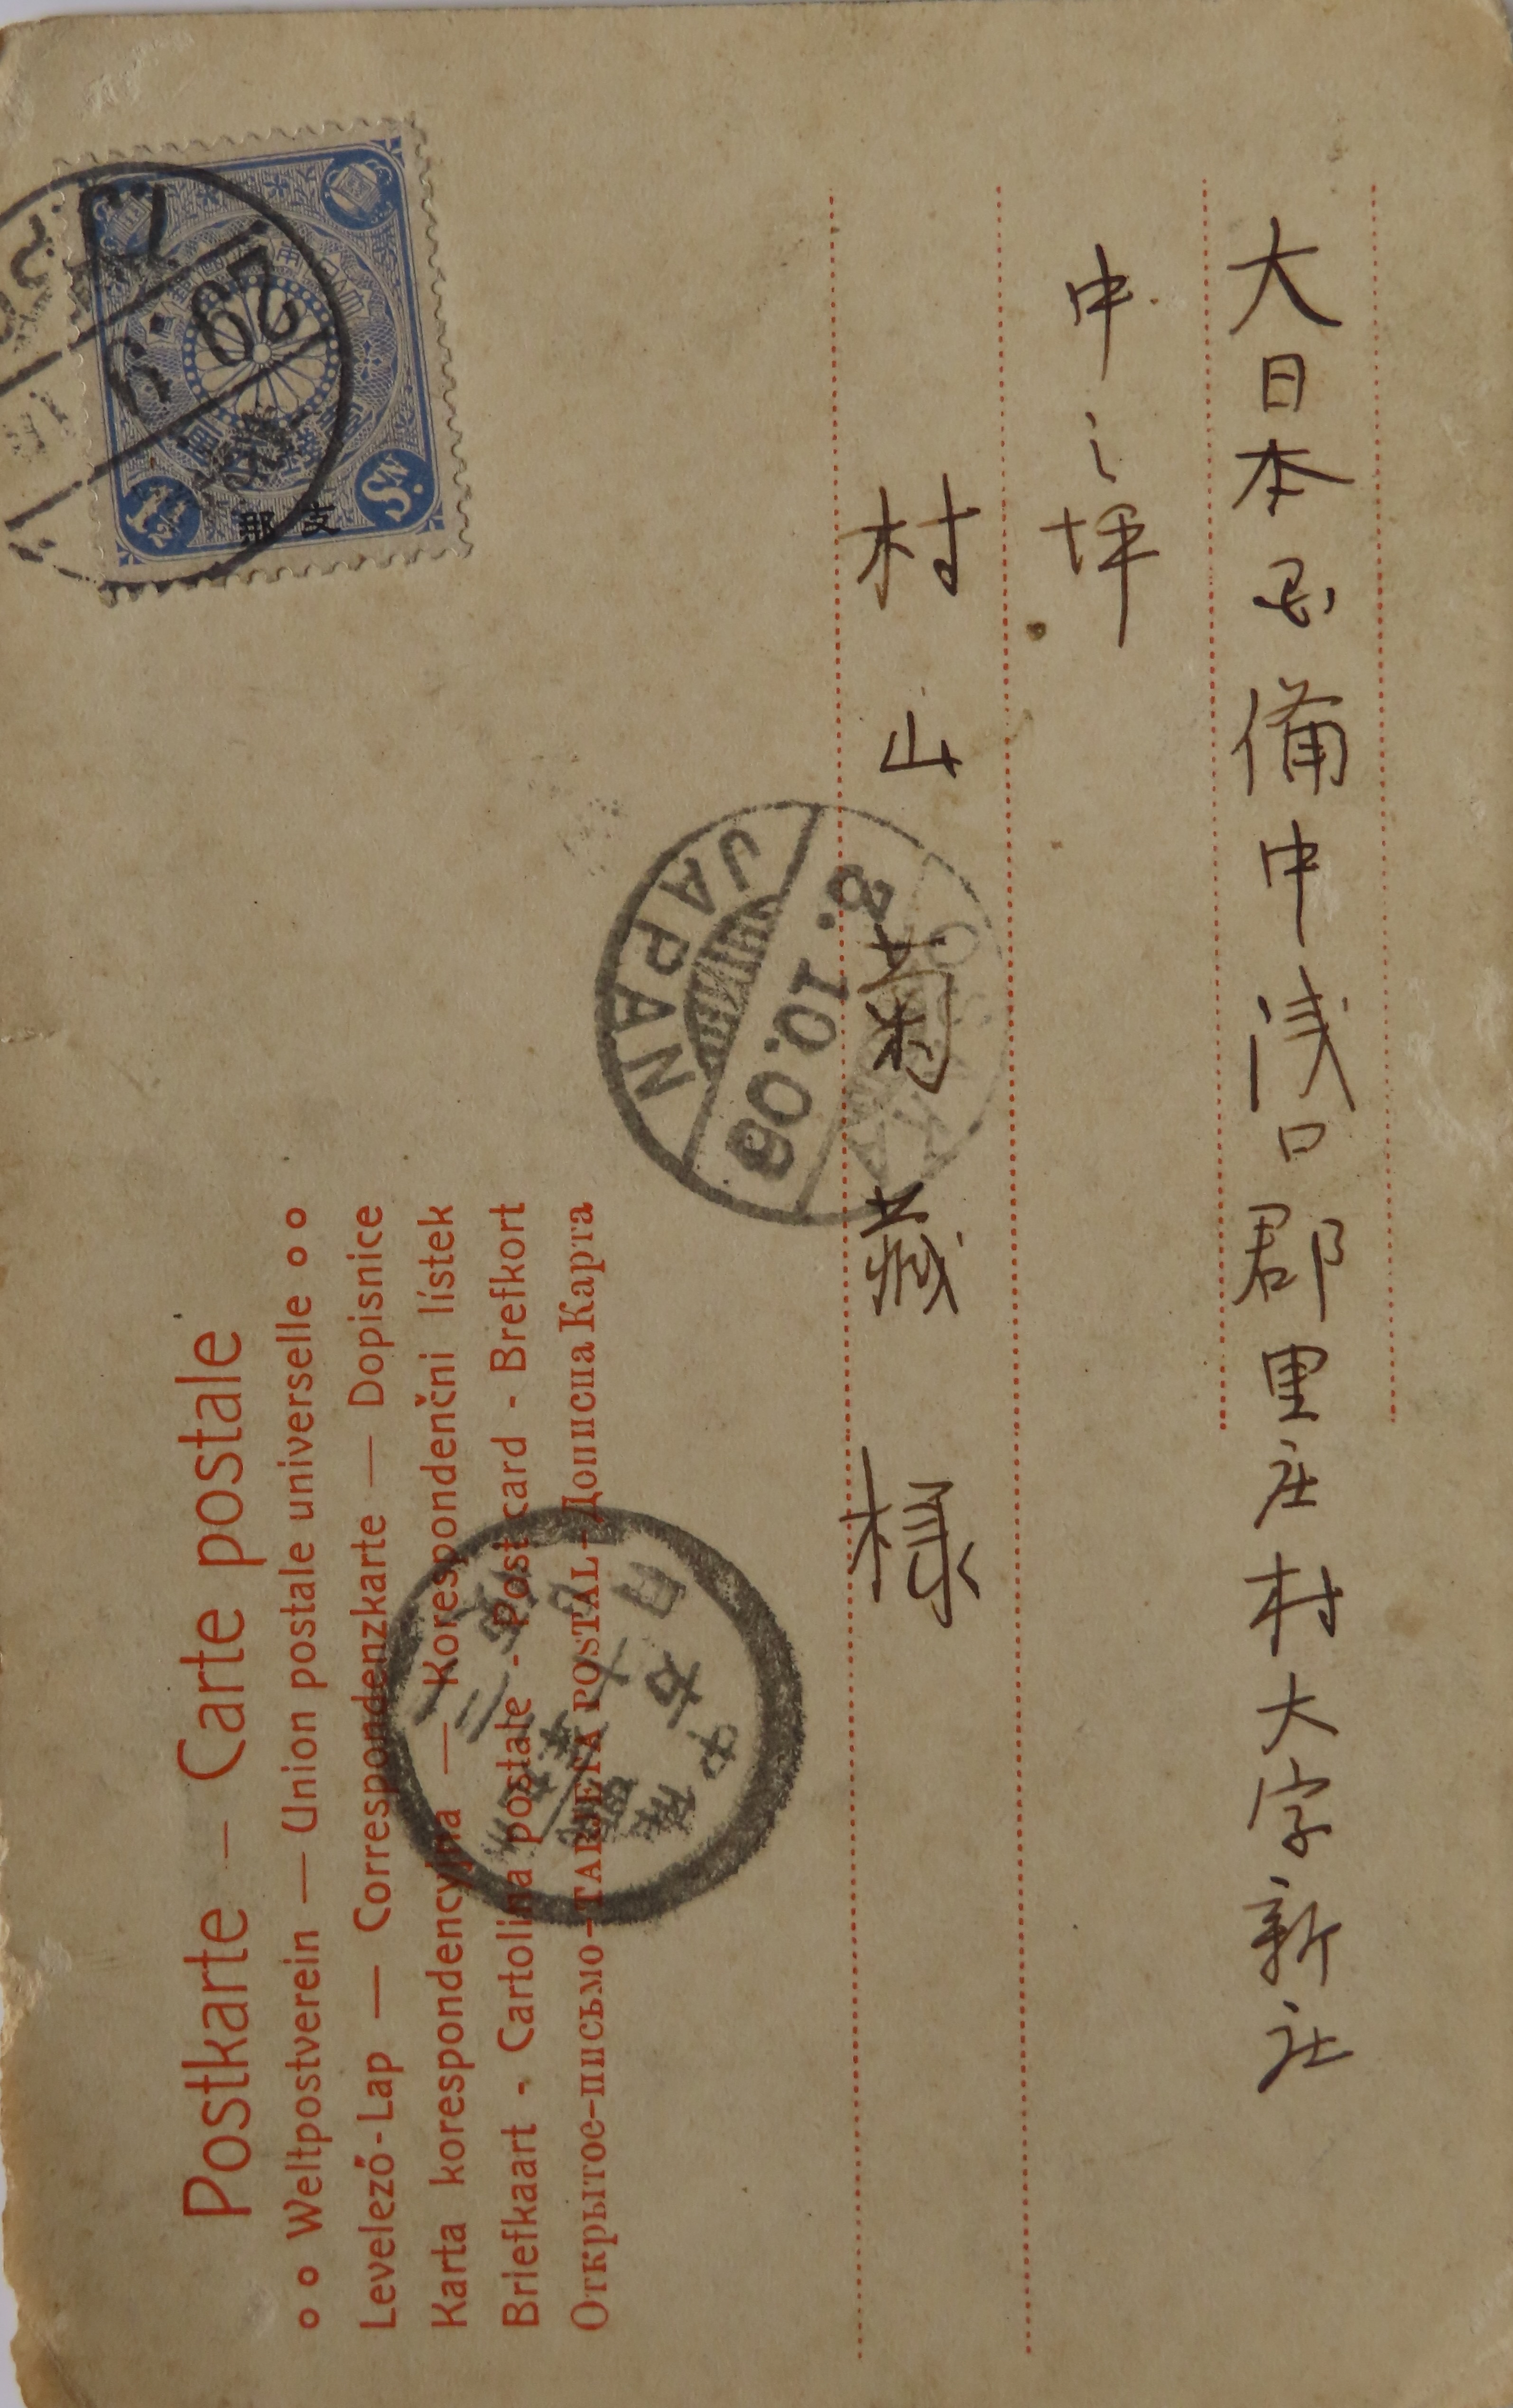 大日本国備中浅口郡里庄村大字新庄
中之坪
村山菊蔵様
Postkarte — Carte postale
Weltpostverein — Union postale universelle
Levelező-Lap — Correspondenzkarte — Dopisnice
Karta korespondencyjna — Korespondenční lístek
Briefkaart - Cartolina postale - Post card - Brefkort
Открытое-письмо-TARJETA POSTAL-Дописна Карта
支那
1½ Sn.
29
9
JAPAN
10.08